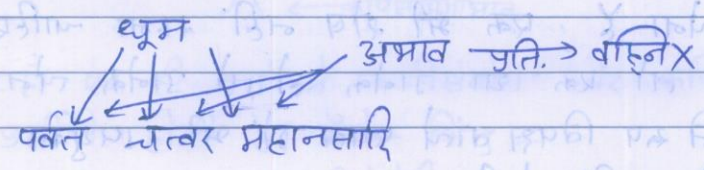 धूम
अभाव प्रति. → वह्नि X
पर्वत चत्वर महानसादि